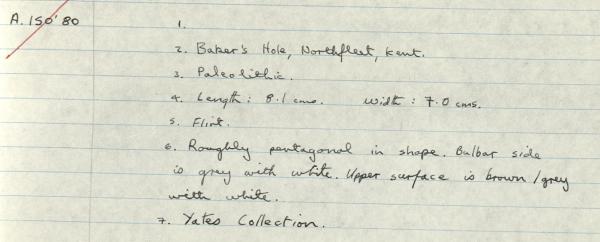 A. 150'80
1.
2. Baker's Hole, Northfleet, Kent.
3. Paleolithic.
4. Length: 8.1 cms. Width: 7.0 cms.
5. Flint.
6. Roughly pentagonal in shape. Bulbar side
is grey with white. Upper surface is brown/grey
with white.
7. Yates Collection.